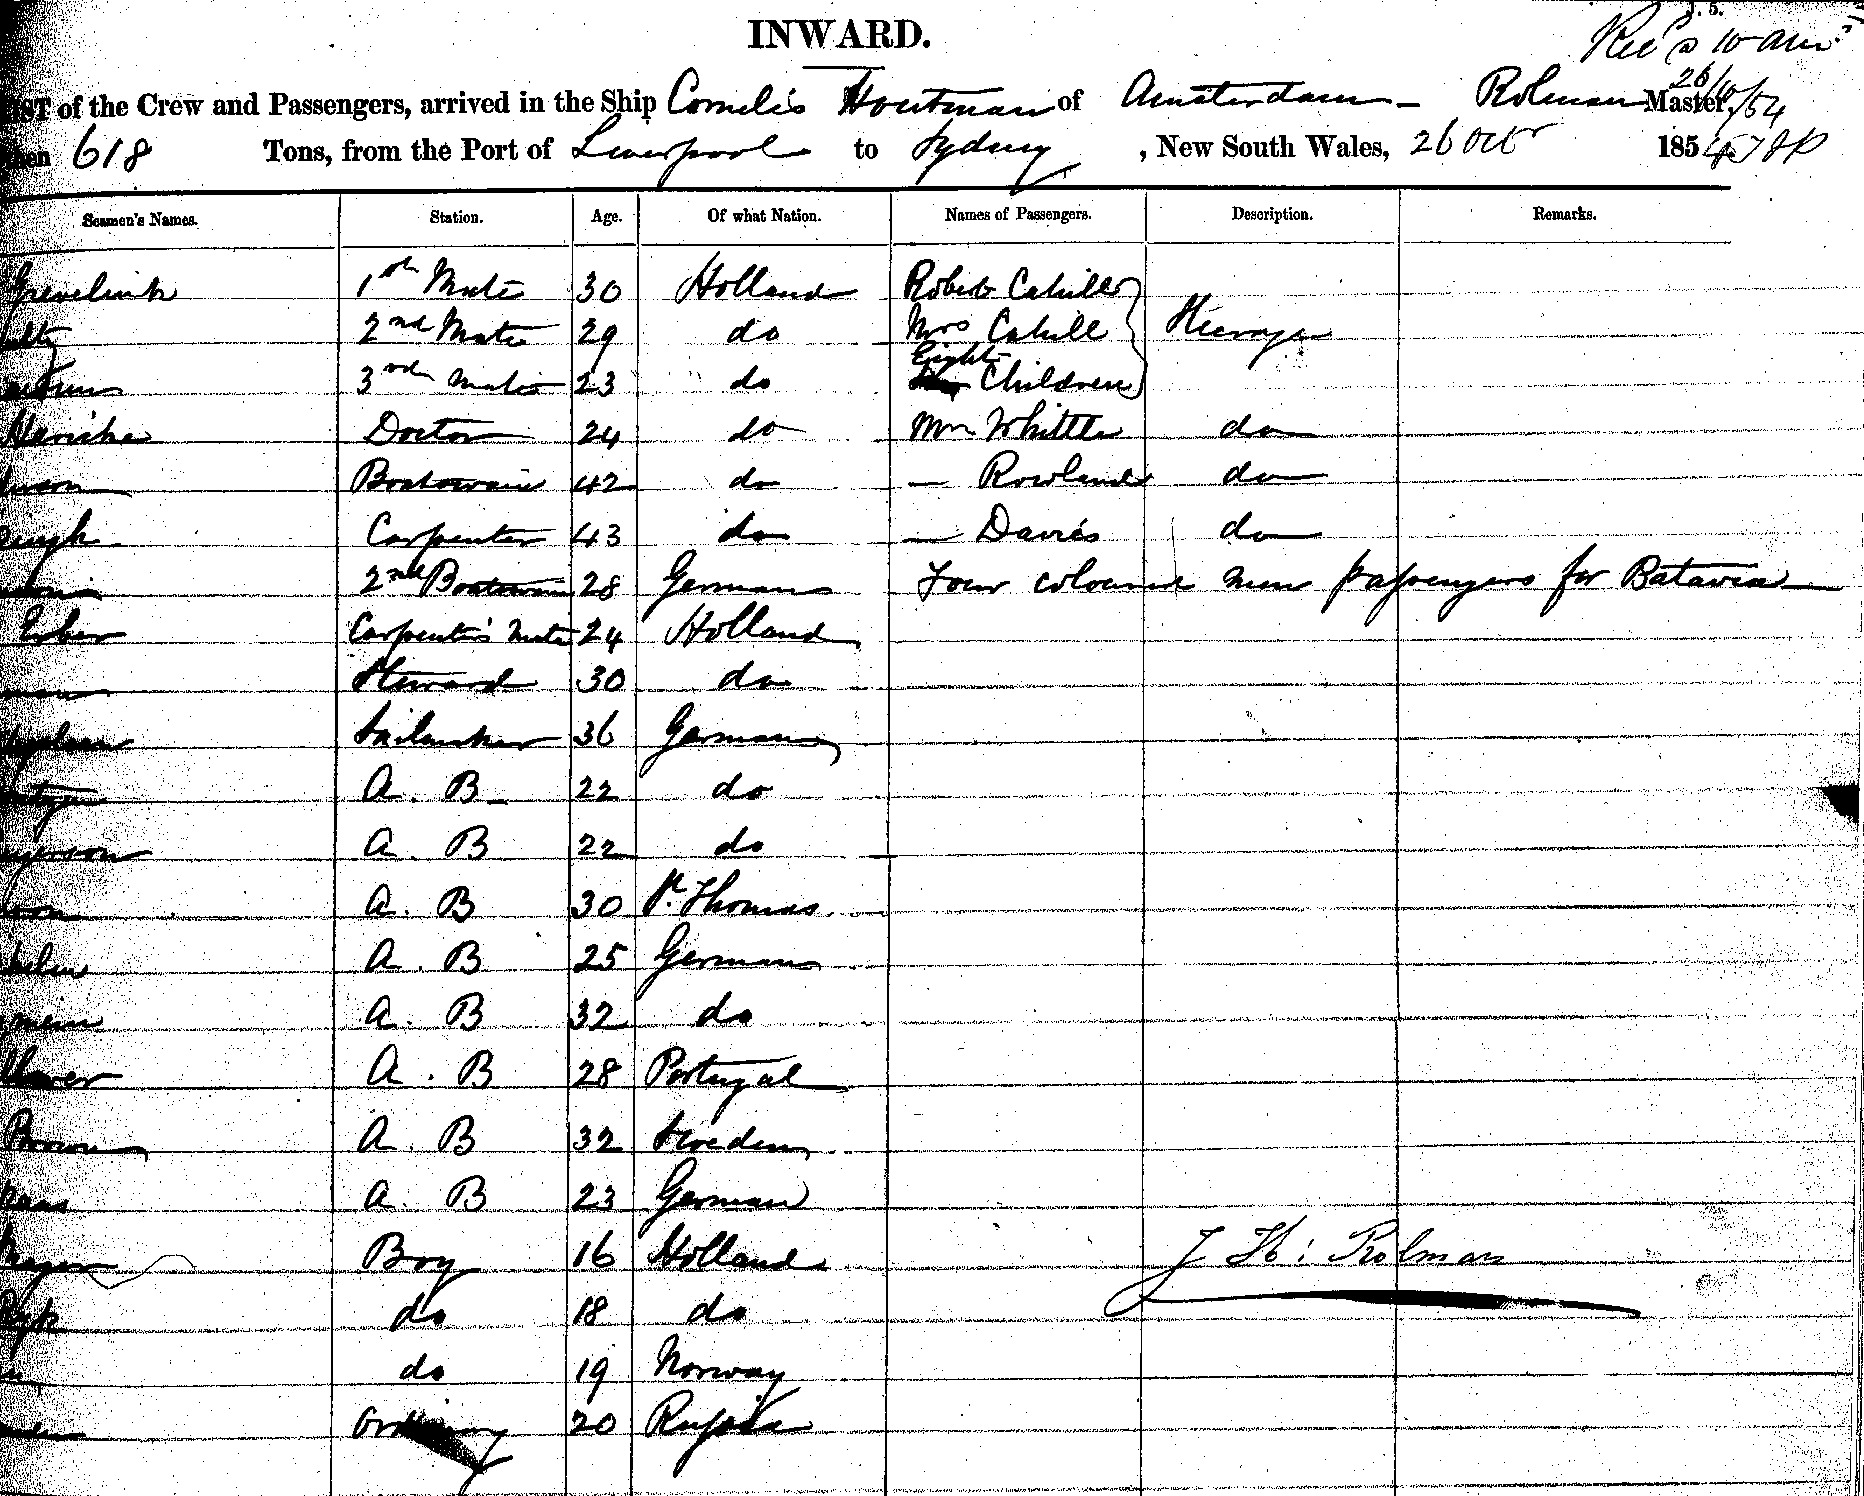 J. 5.
INWARD.
Rec'd 10 am
26/10/54
LIST of the Crew and Passengers, arrived in the Ship Cornelis Houtman of Amsterdam - Rolman Master,
618 Tons, from the Port of Liverpool to Sydney, New South Wales, 26 Oct 1854
Seamen's Names. Station. Age. Of what Nation. Names of Passengers. Description. Remarks.
Grevelink 1st Mate 30 Holland Robert Cahill
2nd Mate 29 do Mrs Cahill Steerage
3rd Mate 23 do Eight Children
Doctor 24 do Mrs Whittle do
Boatswain 42 do — Rowlands do
Carpenter 43 do — Davies do
2nd Boatswain 28 German Four coloured men passengers for Batavia
Carpenter's Mate 24 Holland
Steward 30 do
Sailmaker 36 German
A. B 22 do
A. B 22 do
A. B 30 St. Thomas
A. B 25 German
A. B 32 do
A. B 28 Portugal
Brown A. B 32 Sweden
A. B 23 German
Boy 16 Holland J H: Rolman
do 18 do
do 19 Norway
Ordinary 20 Russia